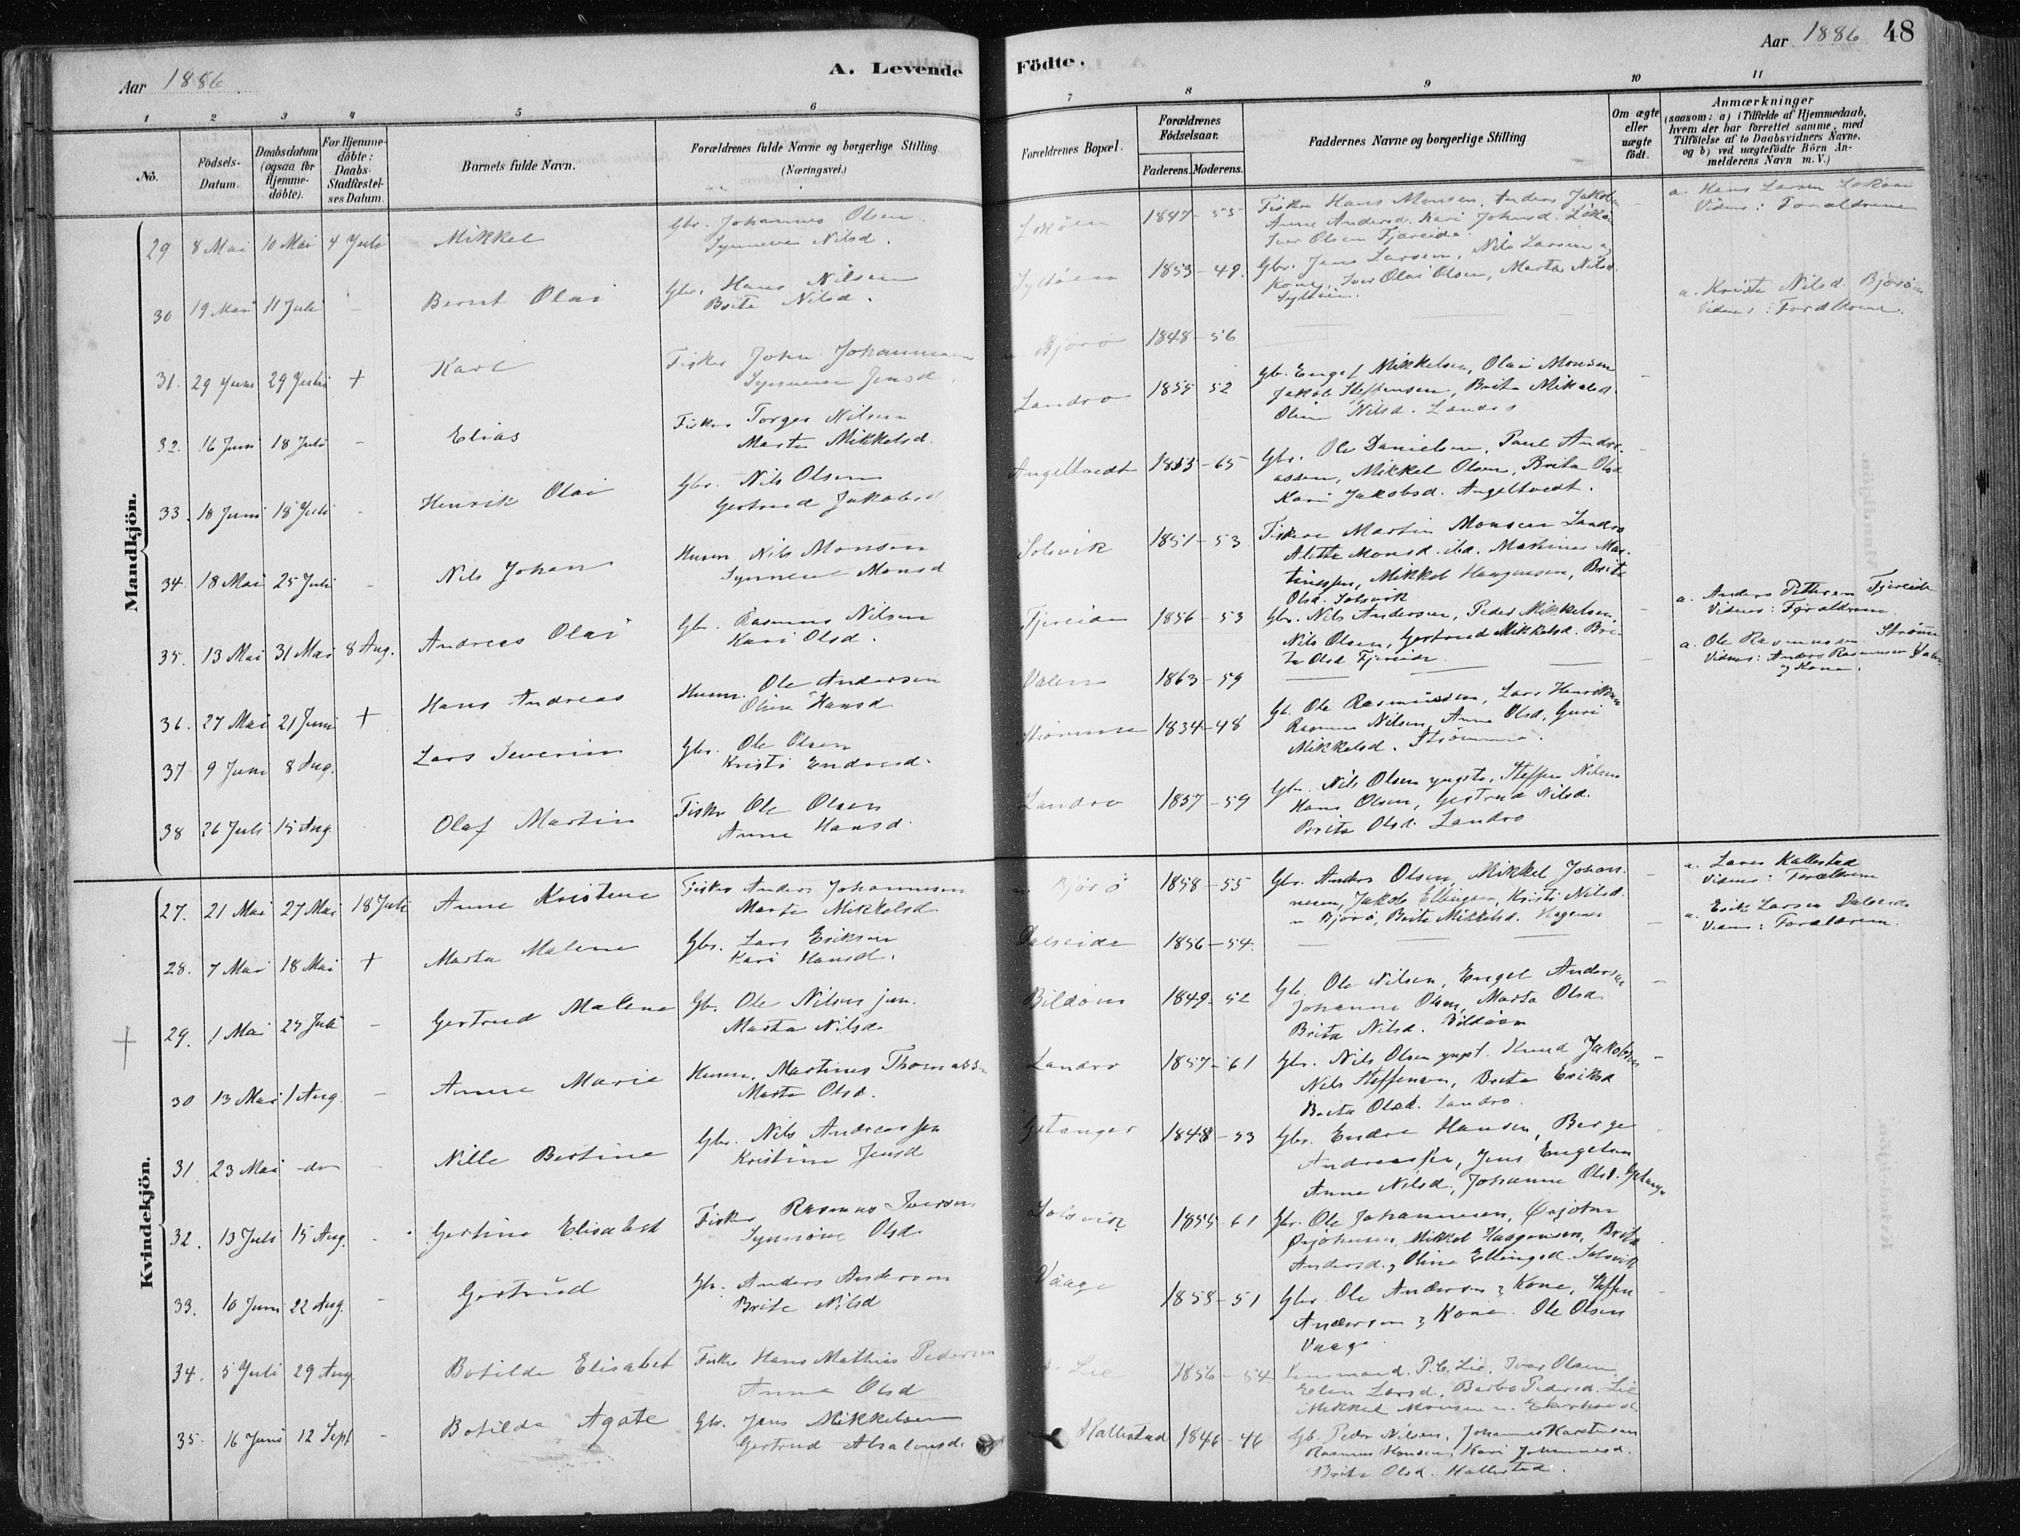 Aar 1886
A. Levende
Födte.
Aar 1886 48
1 2 3 4 5 6 7 8 9 10 11
No.
Födsels-Datum.
Daabsdatum (ogsaa for Hjemmedöbte).
For Hjemmedöbte: Daabs-Stadfæstelses Datum.
Barnets fulde Navn.
Forældrenes fulde Navne og borgerlige Stilling (Næringsvei.)
Forældrenes Bopæl.
Forældrenes Födselsaar.
Faderens. Moderens.
Faddernes Navne og borgerlige Stilling
Om ægte eller uægte födt.
Anmærkninger
(saasom: a) i Tilfælde af Hjemmedaab, hvem der har forrettet samme, med Tilföielse af to Daabsvidners Navne. og b) ved uægtefödte Börn Anmelderens Navn m. V.)
Mandkjön.
29 8 Mai 10 Mai 4 Juli Mikkel Gbr. Johannes Olsen 1847-55 Fisker Hans Monsen, Anders
Synneve Nilsd. Anne Andersd. Kari
Iver Olsen Fjæreide
a. Hans Larsen
Vidner: Forældrene
30 19 Mai 11 Juli - Bernt Olai Gbr. Hans Nilsen 1853-49. Gbr. Jens Larsen, Nils Larsen
Brita Nilsd. Kone, Iver Olai Olsen, Marta Nilsd.
31. 29 Juni 29 Juli + Karl Fisker John Johannesen Bjørø 1848-56
Synneve Jensd.
a. Kristi Nilsd. Bjørøen
Vidner: Forældrene.
32. 16 Juni 18 Juli - Elias Fisker Torger Nilsen Landro 1855 52 Gbr. Engel Mikkelsen, Olai Monsen
Marta Mikkelsd. Jakob Steffensen, Brita Mikkelsd.
Nilsd. Landro
33. 18 Juni 18 Juli - Henrik Olai Gbr. Nils Olsen Angeltvedt 1853-65 Gbr. Ole Danielsen, Paul Andre-
Gertrud Jakobsd assen, Mikkel Olsen, Brita Olsd
Kari Jakobsd. Angeltvedt.
34. 18 Mai 25 Juli - Nils Johan Husm Nils Monsen Solsvik 1851-53 Fisker Martin Monsen Landro
Synneve Monsd Alette Monsd. ibd. Martinus Mar-
tinessen, Mikkel Haagensen, Brita
Olsd. Solsvik
35. 13 Mai 31 Mai 8 Aug. Andreas Olai Gbr. Rasmus Nilsen Fjereide 1856-53 Gbr. Nils Andersen, Peder Mikkelsen,
Kari Olsd. Nils Olsen, Gertrud Mikkelsd. Bri-
ta Olsd Fjereide
a. Anders Pettersen Fjereide
Vidner: Forældrene
36. 27 Mai 21 Juni + Hans Andreas Husm. Ole Andersen Valen 1863-59
Olina Hansd
a. Ole Rasmussen Strømme
Vidner: Anders Rasmussen
og Kone.
37 9 Juni 8 Aug. Lars Severin Gbr. Ole Olsen Strømme 1834-48 Gb. Ole Rasmussen, Lars Henriksen
Kristi Endresd. Rasmus Nilsen, Anna Olsd, Guri
Mikkelsd. Strømme.
38 26 Juli 15 Aug. Olaf Martin Fisker Ole Olsen Landro 1857-59 Gbr. Nils Olsen yngste, Steffen Nilsen
Anne Hansd. Hans Olsen, Gertrud Nilsd.
Brita Olsd. Landro
Kvindekjön.
27. 21 Mai 27 Mai 18 Juli Anne Kristine Fisker Anders Johannesen Bjørø 1858-55 Gbr. Anders Olsen, Mikkel Johan-
Marta Mikkelsd. nesen, Jakob Ellingsen, Kristi Nilsd.
Bjørø, Brita Mikkelsd.
a. Lars Kallestad
Vidner: Forældrene
28. 7 Mai 18 Mai + Marta Malene Gbr. Lars Eriksen Dalseide 1856-54.
Kari Hansd.
a. Erik Larsen Dalseide
Vidner: Forældrene.
29. 1 Mai 25 Juli - Gertrud Malene Gb. Ole Nilsen jun. Bildøen 1849-52 Gb. Ole Nilsen, Engel Andersen
Marta Nilsd. Johannes Olsen, Marta Olsd.
Brita Nilsd. Bildøen
30 13 Mai 1 Aug. - Anne Marie Husm. Martinus Thomassen Landro 1857-61 Gbr. Nils Olsen yngst. Knud Jakobsen
Marta Olsd. Nils Steffensen, Brita Eriksd
Brita Olsd. Landro.
31. 23 Mai do - Nille Bertine Gbr. Nils Andreassen Getanger 1848-53 Gbr. Endre Hansen, Berge
Kristine Jensd Andreassen, Jens Engelsen
Anne Nilsd., Johanne Olsd.
32. 13 Juli 15 Aug. - Gertine Elisabet Fisker Rasmus Iversen Solsvik 1855-61 Gbr. Ole Johannesen,
Synnøve Olsd. Mikkel Haagensen, Brita
Andersd. Olina Ellingsd. Solsvik
33. 10 Juni 22 Aug. - Gertrud Gbr. Anders Andersen Vaage 1858-51 Gbr. Ole Andersen & Kone, Steffen
Brite Nilsd Andersen & Kone. Ole Olsen
Vaage
34. 5 Juli 29 Aug Botilde Elisabet Fisker Hans Mathias Pedersen Lie 1856-54 P.C. Lie, Ivar Olsen
Anna Olsd Elen Larsd. Barbo Pedersd. Lie
Mikkel Monsen
35. 16 Juni 12 Sept - Botilda Agate Gbr. Jens Mikkelsen Kallestad 1846-46 Gb. Peder Nilsen, Johannes Karstensen
Gertrud Absalonsd. Rasmus Hansen, Kari Johannesd.
Brita Olsd. Kallestad.